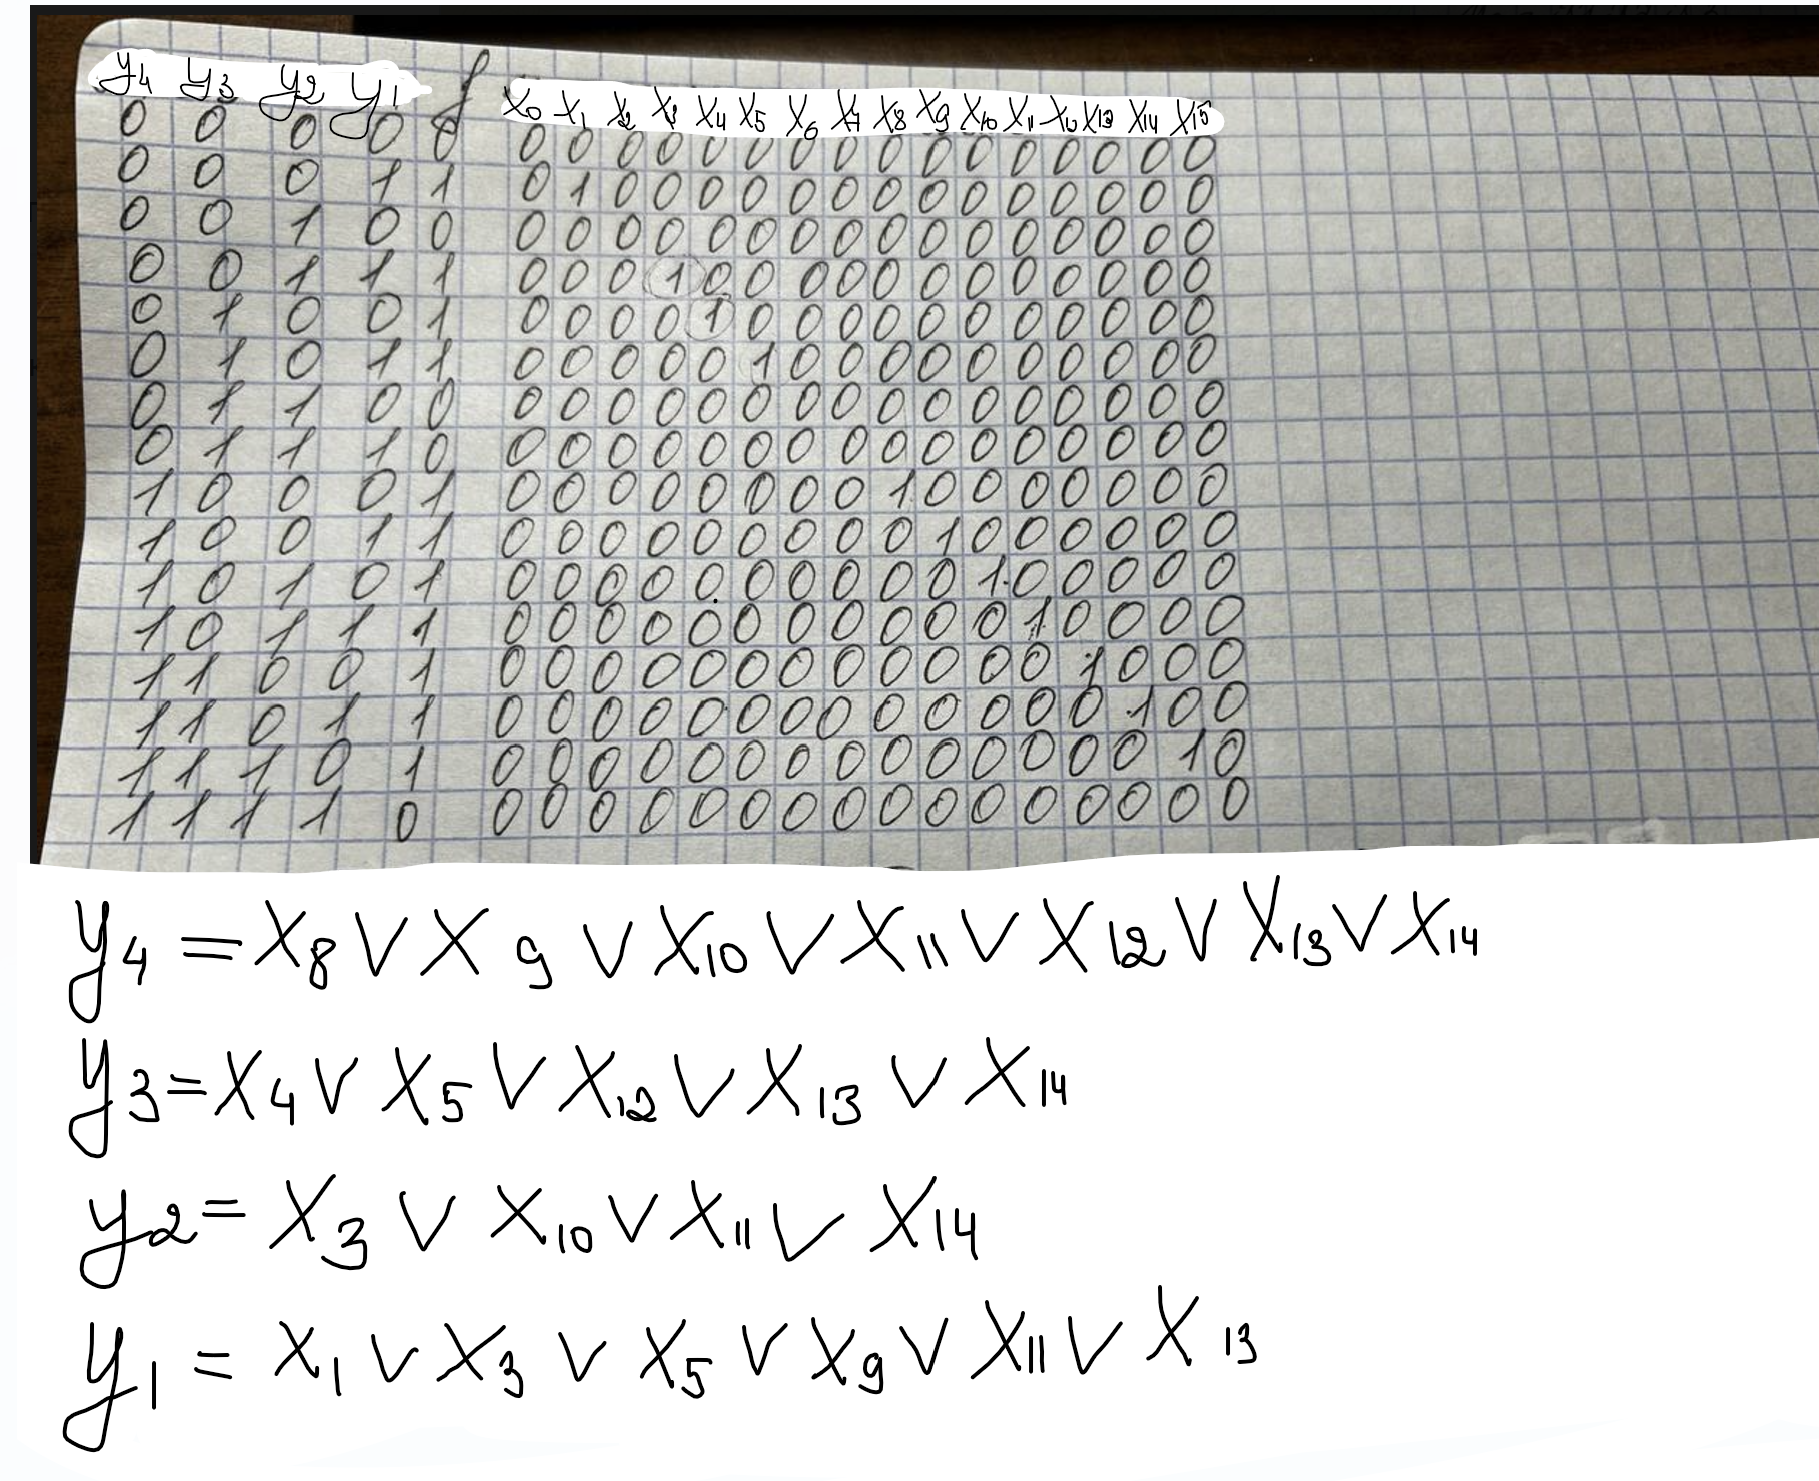 y4 y3 y2 y1 f x0 x1 x2 x3 x4 x5 x6 x7 x8 x9 x10 x11 x12 x13 x14 x15
0 0 0 0 0 0 0 0 0 0 0 0 0 0 0 0 0 0 0 0 0
0 0 0 1 1 0 1 0 0 0 0 0 0 0 0 0 0 0 0 0 0
0 0 1 0 0 0 0 0 0 0 0 0 0 0 0 0 0 0 0 0 0
0 0 1 1 1 0 0 0 1 0 0 0 0 0 0 0 0 0 0 0 0
0 1 0 0 1 0 0 0 0 1 0 0 0 0 0 0 0 0 0 0 0
0 1 0 1 1 0 0 0 0 0 1 0 0 0 0 0 0 0 0 0 0
0 1 1 0 0 0 0 0 0 0 0 0 0 0 0 0 0 0 0 0 0
0 1 1 1 0 0 0 0 0 0 0 0 0 0 0 0 0 0 0 0 0
1 0 0 0 1 0 0 0 0 0 0 0 0 1 0 0 0 0 0 0 0
1 0 0 1 1 0 0 0 0 0 0 0 0 0 1 0 0 0 0 0 0
1 0 1 0 1 0 0 0 0 0 0 0 0 0 0 1 0 0 0 0 0
1 0 1 1 1 0 0 0 0 0 0 0 0 0 0 0 1 0 0 0 0
1 1 0 0 1 0 0 0 0 0 0 0 0 0 0 0 0 1 0 0 0
1 1 0 1 1 0 0 0 0 0 0 0 0 0 0 0 0 0 1 0 0
1 1 1 0 1 0 0 0 0 0 0 0 0 0 0 0 0 0 0 1 0
1 1 1 1 0 0 0 0 0 0 0 0 0 0 0 0 0 0 0 0 0
y4 = x8 ∨ x9 ∨ x10 ∨ x11 ∨ x12 ∨ x13 ∨ x14
y3 = x4 ∨ x5 ∨ x12 ∨ x13 ∨ x14
y2 = x3 ∨ x10 ∨ x11 ∨ x14
y1 = x1 ∨ x3 ∨ x5 ∨ x9 ∨ x11 ∨ x13